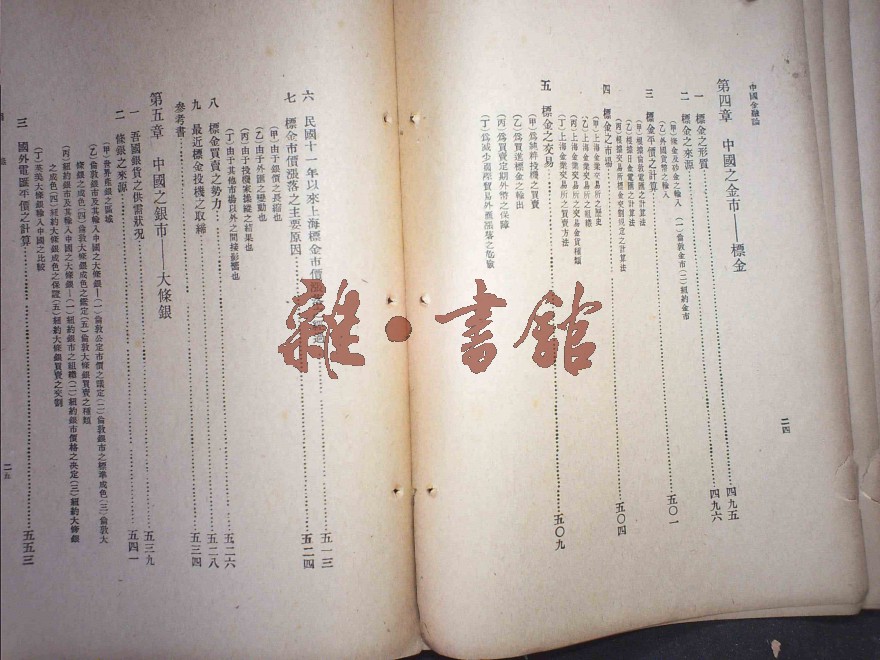 中國金融論
第四章 中國之金市——標金
一 標金之形質……四九五
二 標金之來源……四九六
(甲)條金及砂金之輸入 (一)倫敦金市(二)紐約金市
(乙)外國貨幣之輸入
三 標金平價之計算……五〇一
(甲)根據倫敦電匯之計算法
(乙)根據日金電匯之計算法
(丙)根據交易所標金交割規定之計算法
四 標金之市場……五〇四
(甲)上海金業交易所之歷史
(乙)上海金業交易所之組織
(丙)上海金業交易所交易金貨種類
(丁)上海金業交易所之買賣方法
五 標金之交易……五〇九
(甲)為純粹投機之買賣
(乙)為買進標金之輸出
(丙)為買賣定期外幣之保障
(丁)為減少國際貿易外匯漲落之危險
二四
六 民國十一年以來上海標金市價漲落……五一三
七 標金市價漲落之主要原因……五二四
(甲)由于銀價之長縮也
(乙)由于外匯之變動也
(丙)由于投機家操縱之結果也
(丁)由于其他市場以外之間接影響也
八 標金買賣之勢力……五二六
九 最近標金投機之取締……五二八
參考書……五三四
第五章 中國之銀市——大條銀
一 吾國銀貨之供需狀況……五三九
二 條銀之來源……五四一
(甲)世界產銀之區域
(乙)倫敦銀市及其輸入中國之大條銀—(一)倫敦公定市價之議定(二)倫敦銀市之標準成色(三)倫敦大
條銀之成色(四)倫敦大條銀成色之鑑定(五)倫敦大條銀買賣之種類
(丙)紐約銀市及其輸入中國之大條銀—(一)紐約銀市之組織(二)紐約銀市價格之決定(三)紐約大條銀
之成色(四)紐約大條銀成色之保證(五)紐約大條銀買賣之交割
(丁)英美大條銀輸入中國之比較
三 國外電匯平價之計算……五五三
二五
雜·書館